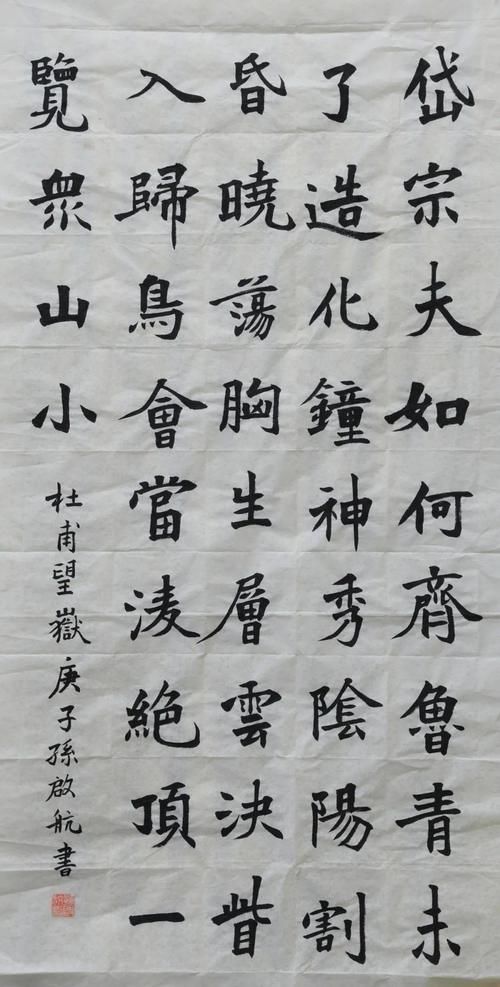 岱宗夫如何齊魯青未
了造化鐘神秀陰陽割
昏曉蕩胸生層雲決眥
入歸鳥會當淩絶頂一
覽衆山小
杜甫望嶽庚子孫啟航書